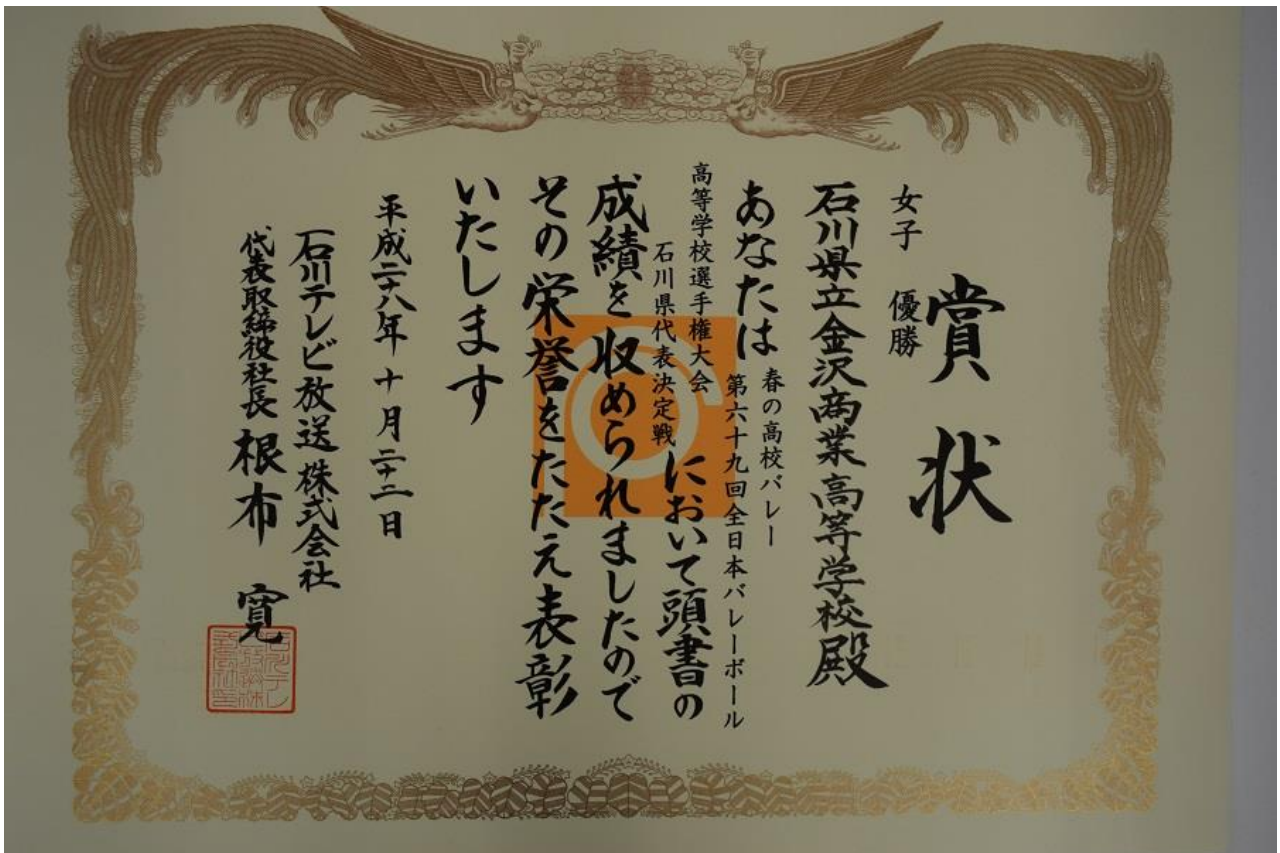 賞状
女子 優勝
石川県立金沢商業高等学校殿
あなたは 春の高校バレー
第六十九回全日本バレーボール
高等学校選手権大会
石川県代表決定戦 において頭書の
成績を収められましたので
その栄誉をたたえ表彰
いたします
平成二十八年十月二十二日
石川テレビ放送株式会社
代表取締役社長 根布 寛